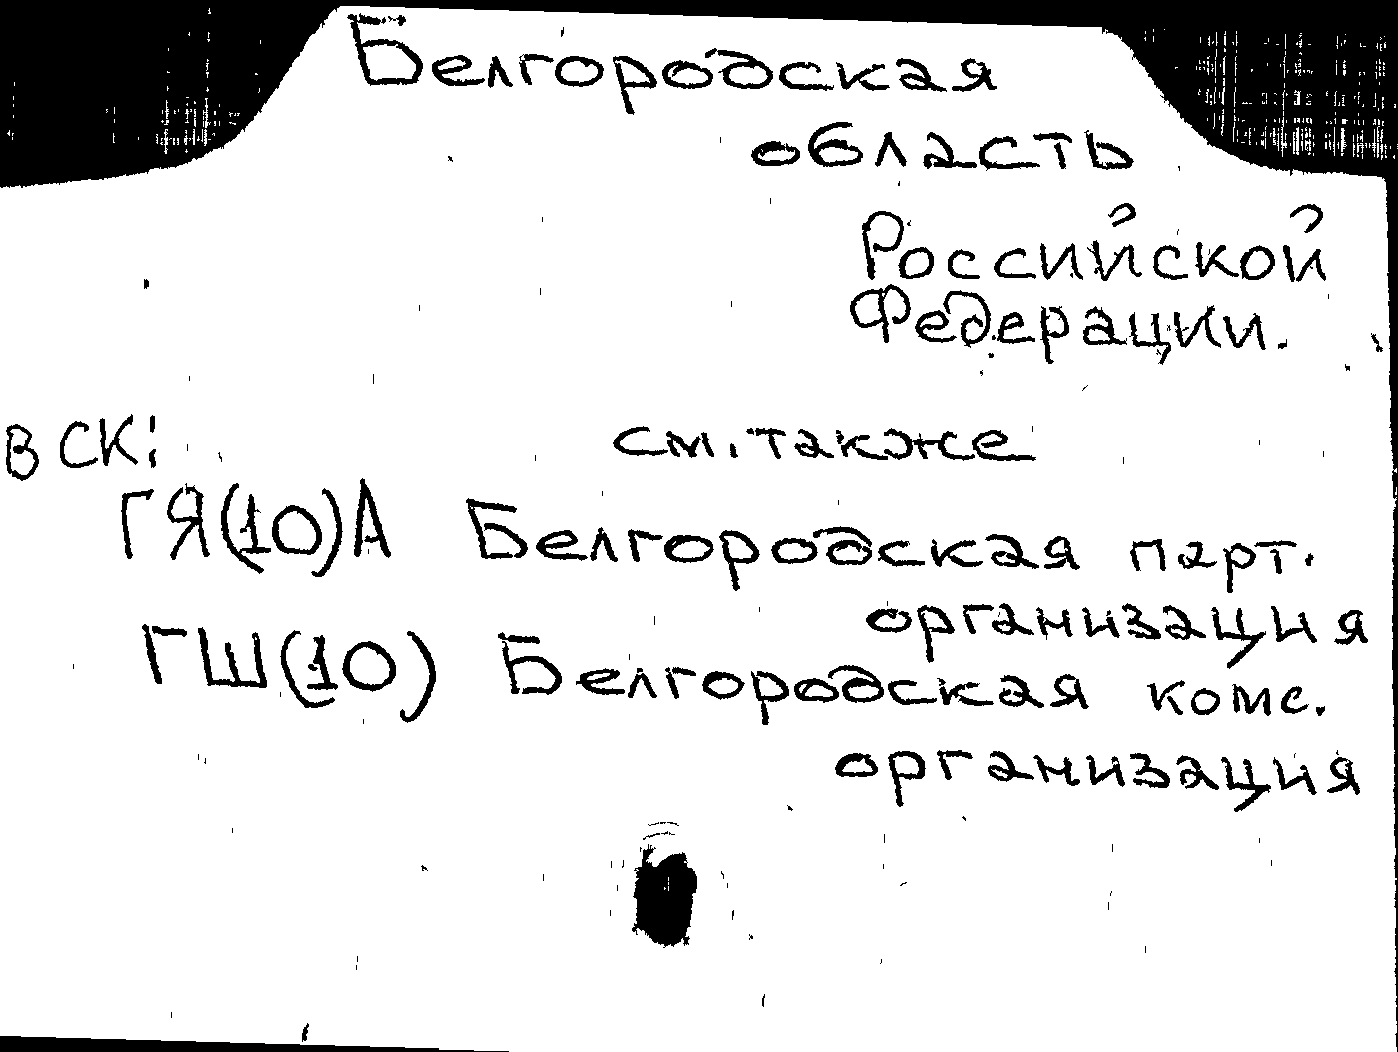 Белгородская
область
Российской
Федерации.
в СК: см. также
ГЯ(10)А Белгородская парт.
организация
ГШ(10) Белгородская комс.
организация